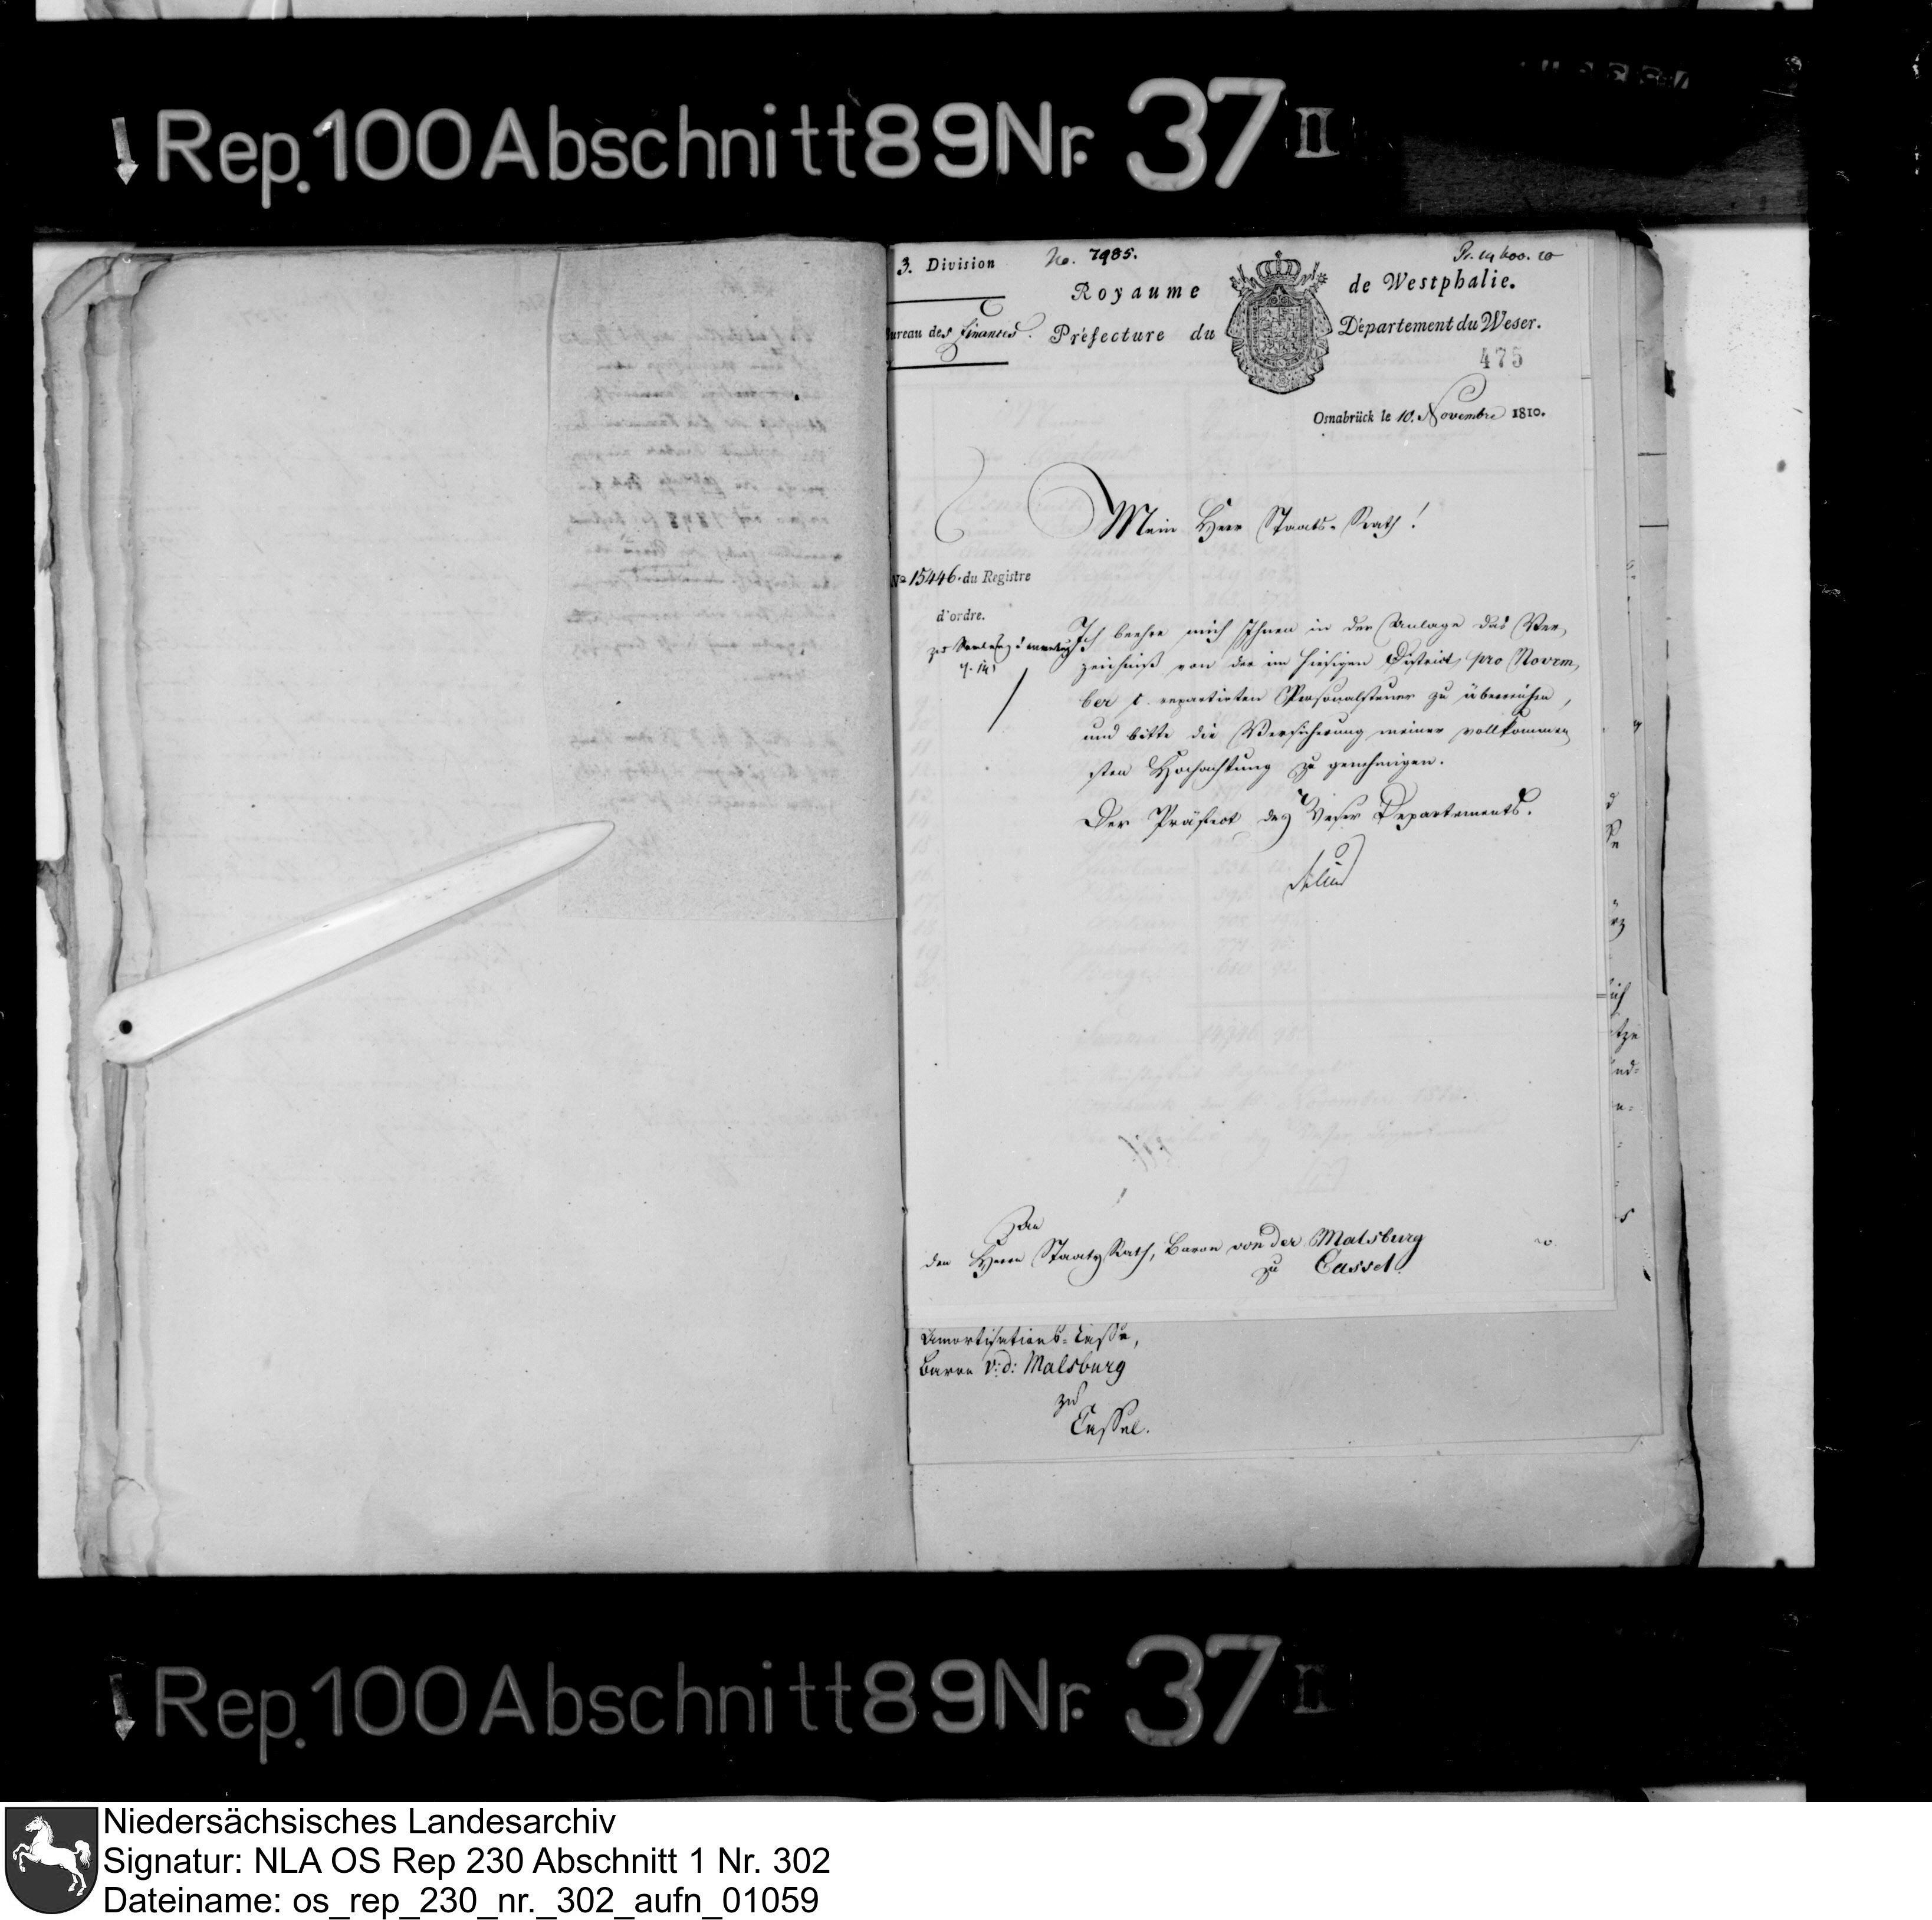 Rep. 100 Abschnitt 89 Nr. 37 II
3. Division
No. 7985.
Royaume de Westphalie.
Bureau des finances.
Préfecture du Département du Weser.
475
Osnabrück le 10. Novembre 1810.
Mein Herr Staats-Rath!
No 15446. du Registre
d'ordre.
Ich beehre mich Ihnen in der Anlage das Ver-
zeichniß von der im hiesigen District pro Novem-
ber c. repartirten Personalsteuer zu überreichen,
und bitte die Versicherung meiner vollkommen-
sten Hochachtung zu genehmigen.
Der Präfect des Weser Departements.
An
den Herrn Staats Rath, Baron von der Malsburg
zu Cassel.
Amortisations-Casse,
Baron v: d: Malsburg
zu
Cassel.
Rep. 100 Abschnitt 89 Nr. 37 II
Niedersächsisches Landesarchiv
Signatur: NLA OS Rep 230 Abschnitt 1 Nr. 302
Dateiname: os_rep_230_nr._302_aufn_01059